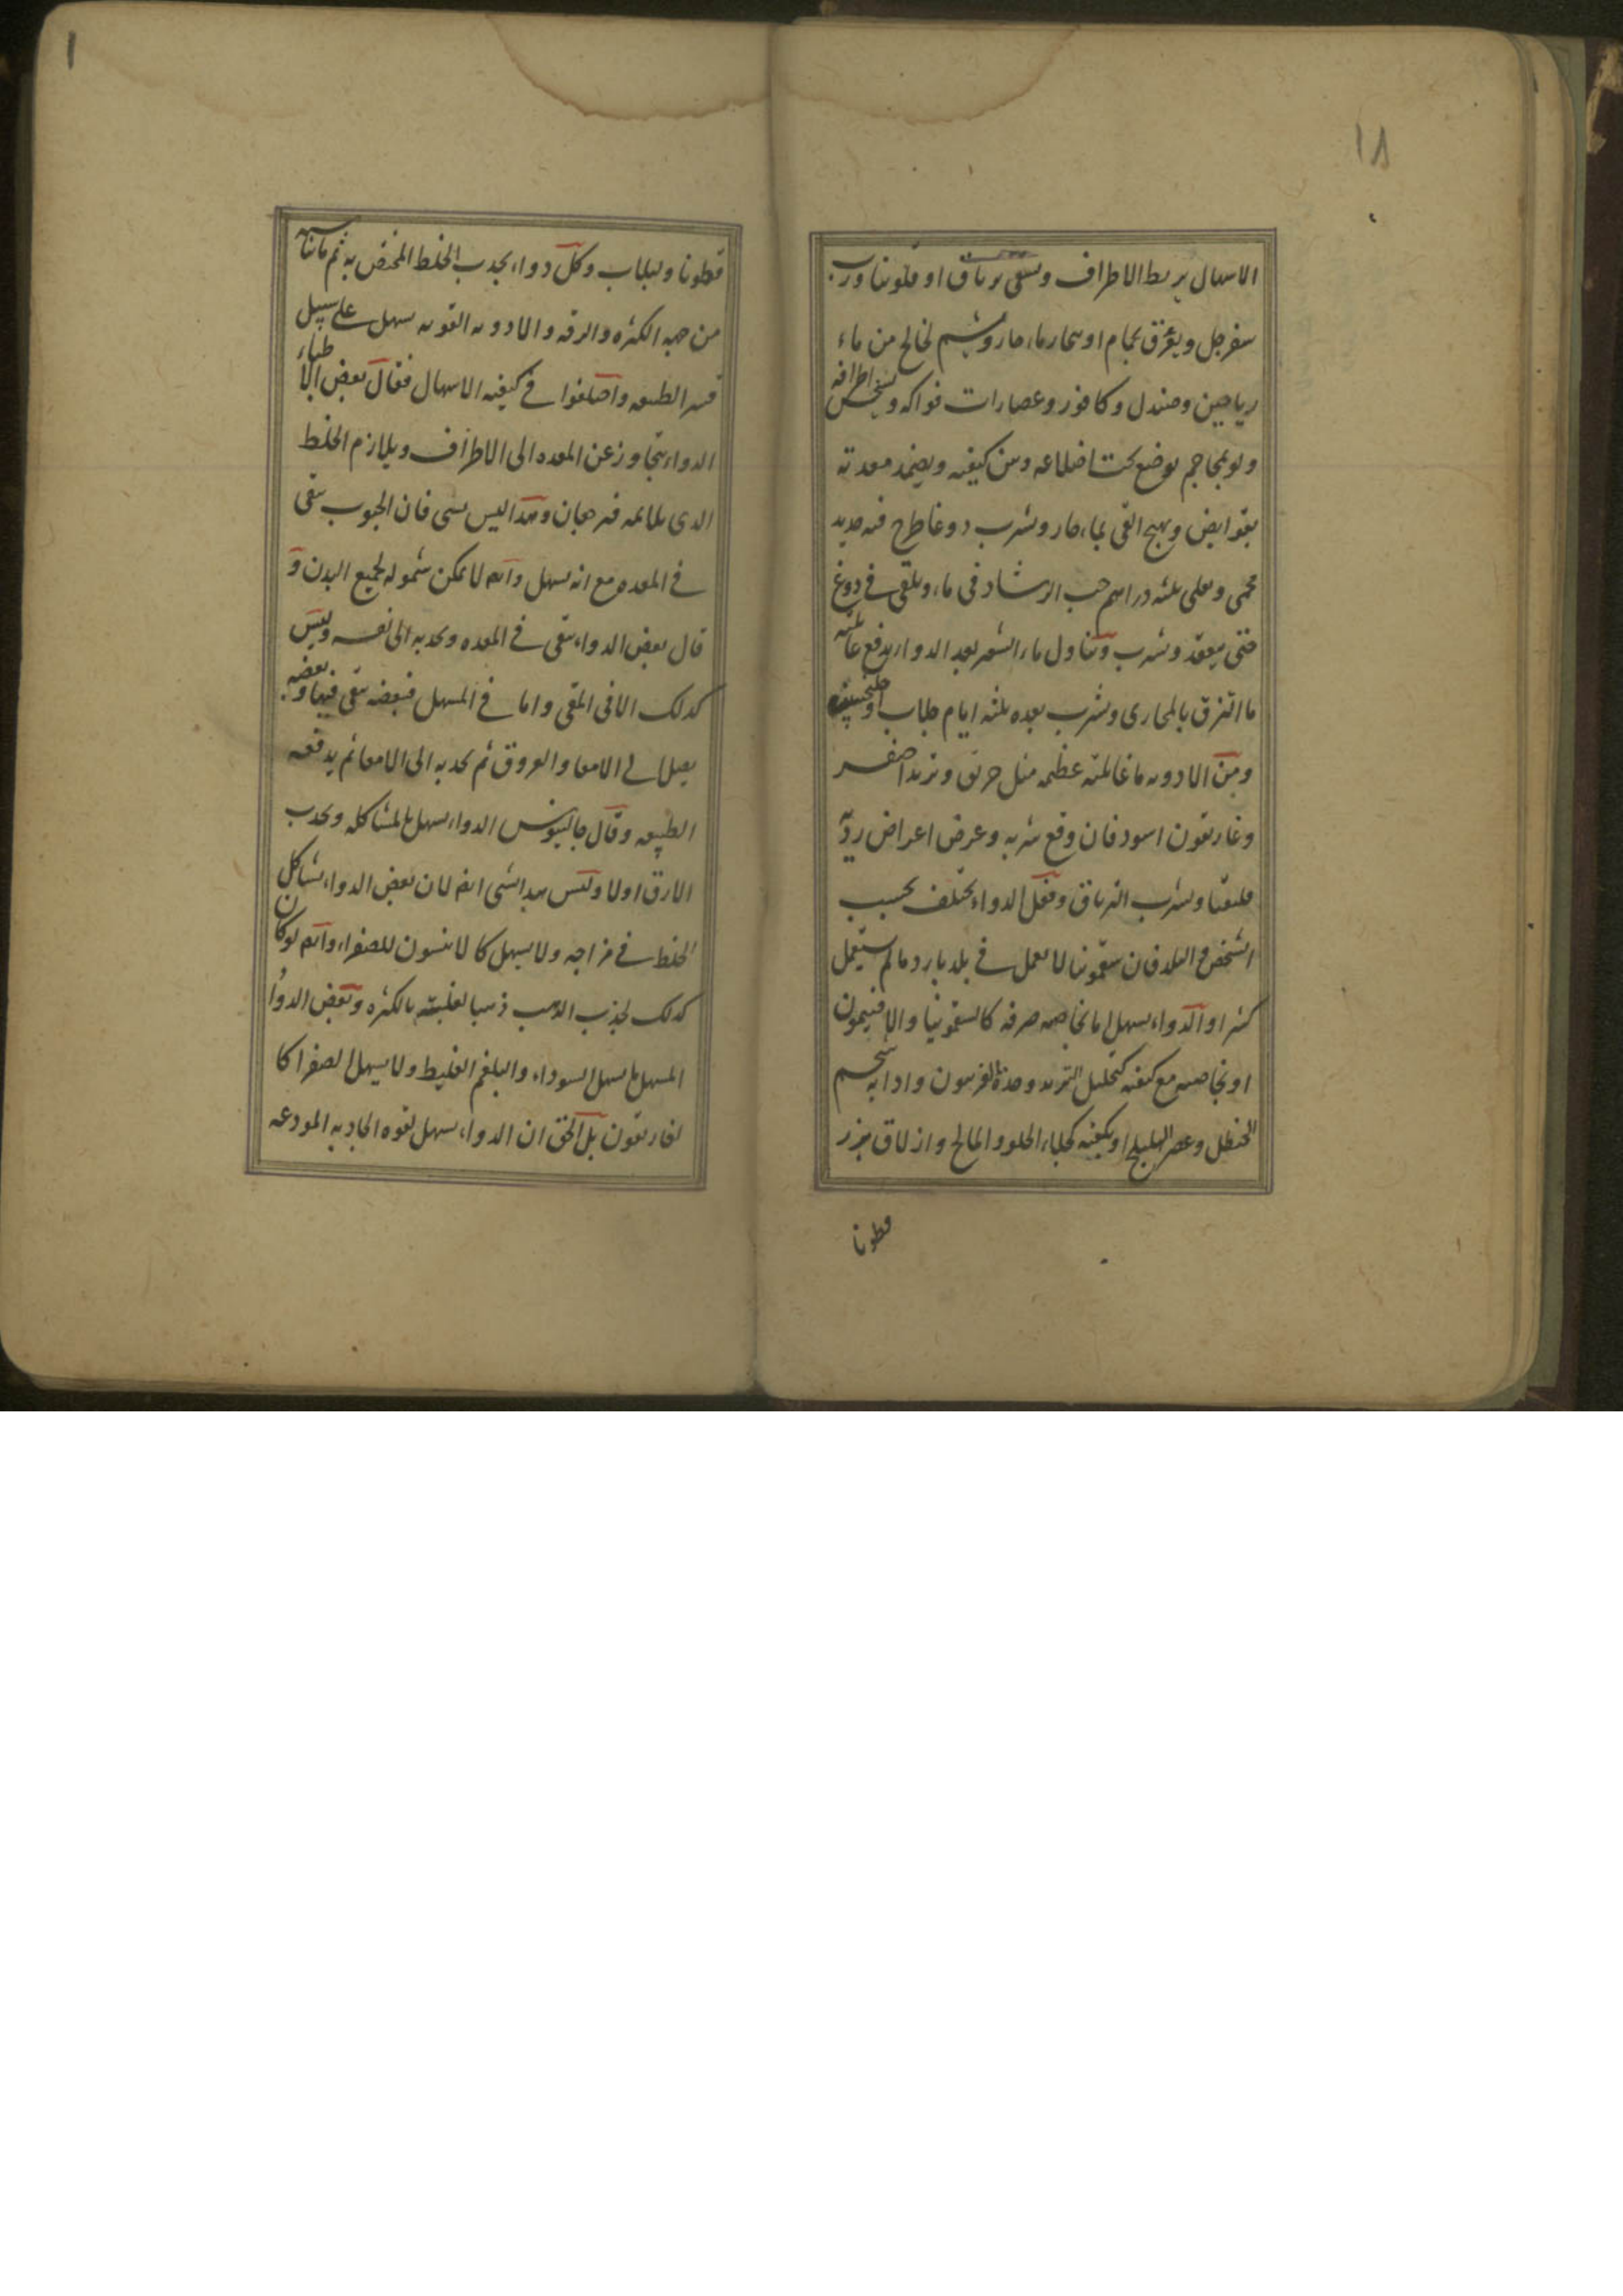 ١٨
الاسهال يربط الاطراف ويسقى ترياق او فلونيا ورب
سفرجل ويعرق بحمام او ببخار ماء حار ويشم لخالخ من ماء
رياحين وصندل وكافور وعصارات فواكه ويسخن اطرافه
ولو بمحاجم يوضع تحت اضلاعه وبين كتفيه ويضمد معدته
بقوابض ويهيج القى بماء حار ويشرب دوغا طرح فيه حديد
محمى ويغلى ثلثه دراهم حب الرشاد فى ماء ويلقى فى دوغ
حتى ينعقد ويشرب وتناول ماء الشعير بعد الدواء يدفع غائلته
ما التزق بالمجارى ويشرب بعده ثلثه ايام جلاب او
ومن الادويه ما غائلته عظيمه مثل خربق وتربد اصفر
وغاريقون اسود فان وقع شربه وعرض اعراض رديّه
فليتقيا ويشرب الترياق وفعل الدواء يختلف بحسب
الشخص والبلد فان سقمونيا لا يعمل فى بلد بارد ما لم يستعمل
كثيرا والدواء يسهل اما بخاصيه صرفه كالسقمونيا والافتيمون
او بخاصيه مع كيفيه كتحليل التربد وحدة الفربيون واذابه شحم
الحنظل وعصر الهليلج او بكيفيه كجلاء الحلو والمالح وازلاق بزر
قطونا
١
قطونا ولبلاب وكل دواء يجذب الخلط المختص به ثم ما يناسبه
من جهه الكثره والرقه والادويه القويه يسهل على سبيل
قسر الطبيعه واختلفوا فى كيفيه الاسهال فقال بعض الاطباء
الدواء يتجاوز عن المعده الى الاطراف ويلازم الخلط
الذى يلائمه فيرجعان وهذا ليس بشى فان الحبوب يبقى
فى المعده مع انه يسهل وايضا لا يمكن شموله لجميع البدن و
قال بعض الدواء يبقى فى المعده ويجذبه الى نفسه وليس
كذلك الا فى المقى واما فى المسهل فبعضه يبقى فيها وبعضه
يصل الى الامعا والعروق ثم يجذبه الى الامعا ثم يدفعه
الطبيعه وقال جالينوس الدواء يسهل بالمشاكله ويجذب
الارق اولا وليس هذا بشى ايضا لان بعض الدواء يشاكل
الخلط فى مزاجه ولا يسهل كالانيسون للصفراء وايضا لو كان
كذلك لجذب الذهب ذهبا لغلبته بالكثره وبعض الدواء
المسهل يسهل السوداء والبلغم الغليظ ولا يسهل الصفرا كا
لغاريقون بل الحق ان الدواء يسهل بقوه الجاذبه المودعه